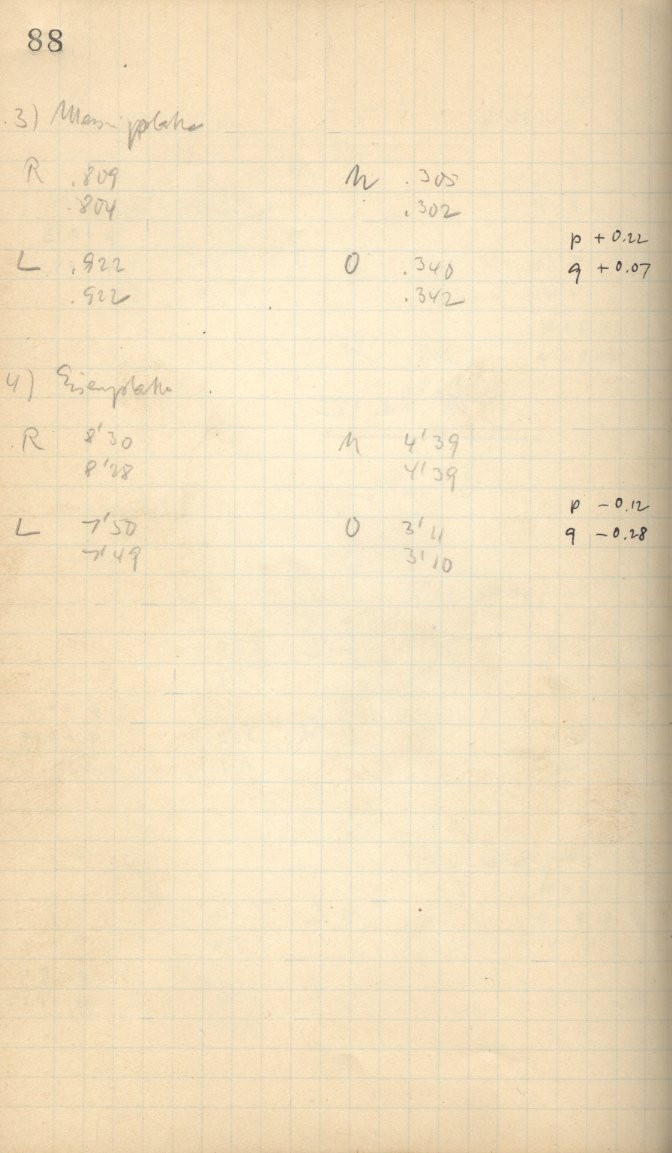 88
3) Messingplatte
R .809 M .305
.804 .302
p + 0.22
L .922 O .340 q + 0.07
.922 .342
4) Eisenplatte
R 8'30 M 4'39
8'28 4'39
p - 0.12
L 7'50 O 3'11 q - 0.28
7'49 3'10